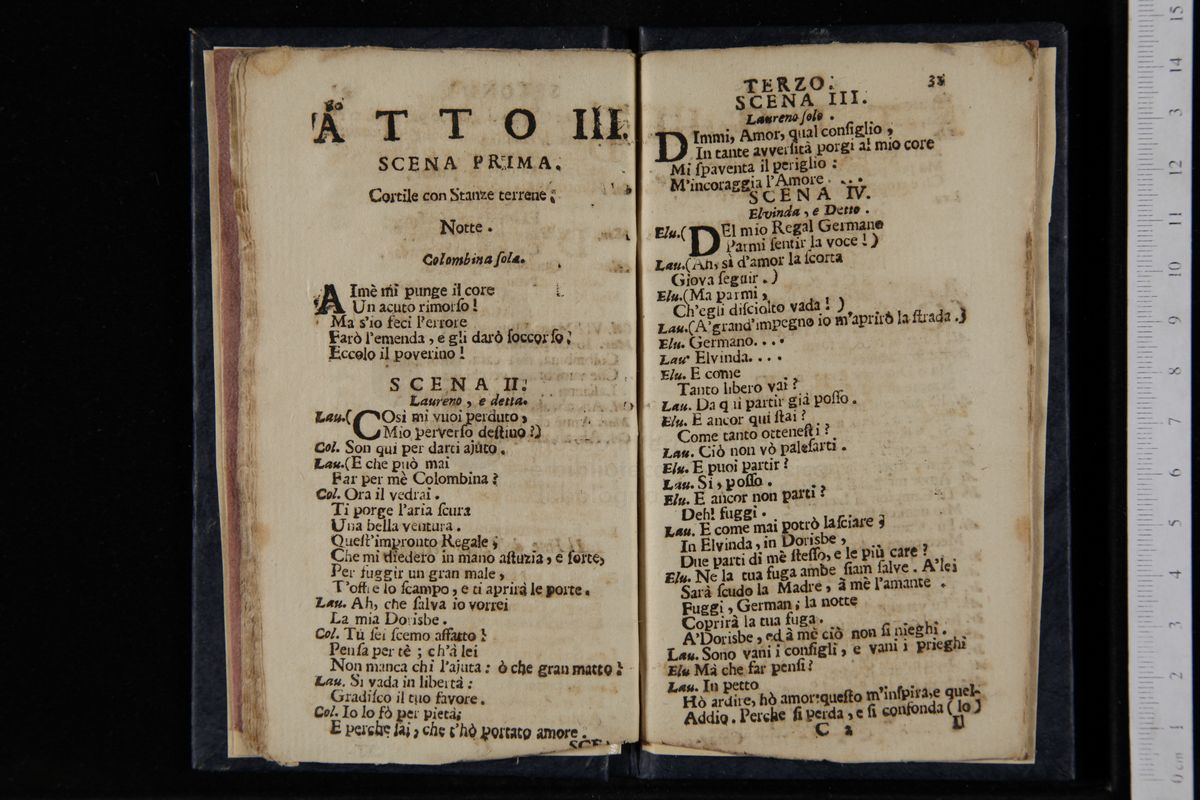 80
ATTO III.
SCENA PRIMA.
Cortile con Stanze terrene;
Notte.
Colombina sola.
AImè mi punge il core
Un acuto rimorso!
Ma s'io feci l'errore
Farò l'emenda, e gli darò soccorso;
Eccolo il poverino!
SCENA II.
Laureno, e detta.
Lau.(COsì mi vuoi perduto,
Mio perverso destino?)
Col. Son qui per darti ajuto.
Lau.(E che può mai
Far per mè Colombina?
Col. Ora il vedrai.
Ti porge l'aria scura
Una bella ventura.
Quest'impronto Regale,
Che mi diedero in mano astuzia, e sorte,
Per fuggir un gran male,
T'offre lo scampo, e ti aprirà le porte.
Lau. Ah, che salva io vorrei
La mia Dorisbe.
Col. Tù sei scemo affatto!
Pensa per tè; ch'à lei
Non manca chi l'ajuta: ò che gran matto!
Lau. Si vada in libertà:
Gradisco il tuo favore.
Col. Io lo fò per pietà;
E perche sai, che t'hò portato amore.
SCE-
TERZO. 33
SCENA III.
Laureno solo.
DImmi, Amor, qual consiglio,
In tante avversità porgi al mio core
Mi spaventa il periglio:
M'incoraggia l'Amore....
SCENA IV.
Elvinda, e Detto.
Elu.(DEl mio Regal Germano
Parmi sentir la voce!)
Lau.(Ah, sì d'amor la scorta
Giova seguir.)
Elu.(Ma parmi,
Ch'egli disciolto vada!)
Lau.(A'grand'impegno io m'aprirò la strada.)
Elu. Germano....
Lau. Elvinda....
Elu. E come
Tanto libero vai?
Lau. Da quì partir già posso.
Elu. E ancor qui stai?
Come tanto ottenesti?
Lau. Ciò non vò palesarti.
Elu. E puoi partir?
Lau. Si, posso.
Elu. E ancor non parti?
Deh! fuggi.
Lau. E come mai potrò lasciare
In Elvinda, in Dorisbe,
Due parti di mè stesso, e le più care?
Elu. Ne la tua fuga ambe siam salve. A'lei
Sarà scudo la Madre, à mè l'amante.
Fuggi, German; la notte
Coprirà la tua fuga.
A'Dorisbe, ed à mè ciò non si nieghi.
Lau. Sono vani i consigli, e vani i prieghi
Elu Mà che far pensi?
Lau. In petto
Hò ardire, hò amor: questo m'inspira, e quel-
Addio. Perche si perda, e si confonda (lo)
C 2 Il